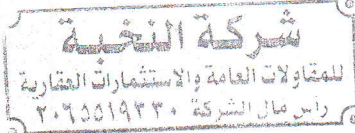 شركة النخبة
للمقاولات العامة والاستثمارات العقارية
راس مال الشركة ٢٠٦٥٥١٩٣٣٠